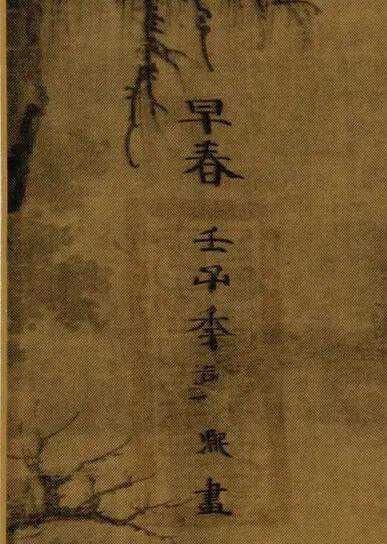 早春壬子年郭熙畫